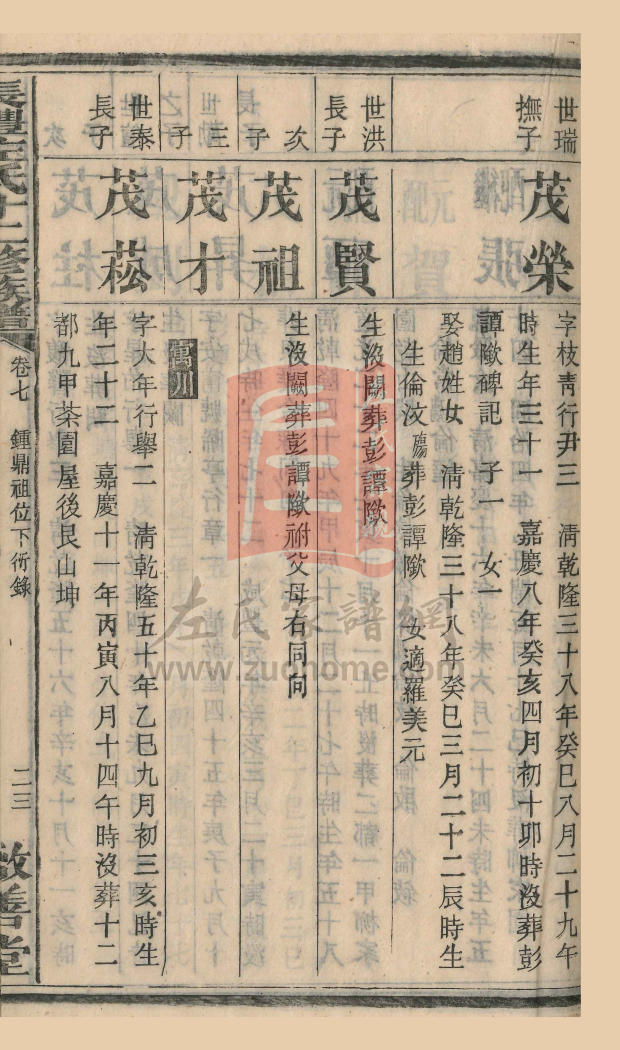 世瑞
撫子
茂榮
字枝靑行尹三 清乾隆三十八年癸巳八月二十九午
時生年三十一 嘉慶八年癸亥四月初十卯時沒葬彭
譚歟碑記 子一 女一
娶趙姓女 清乾隆三十八年癸巳三月二十二辰時生
生倫汶 葬彭譚歟 女適羅美元
世洪
長子
茂賢
生沒闕葬彭譚歟
次
子
茂祖
生沒闕葬彭譚歟祔父母右同向
三
子
茂才
萬川
世泰
長子
茂菘
字大年行舉二 清乾隆五十年乙巳九月初三亥時生
年二十二 嘉慶十一年丙寅八月十四午時沒葬十二
都九甲茶園屋後艮山坤
氏十二修族譜
卷七 鍾鼎祖位下衍錄
二三
敦善堂
左氏家譜網
www.zuohome.com